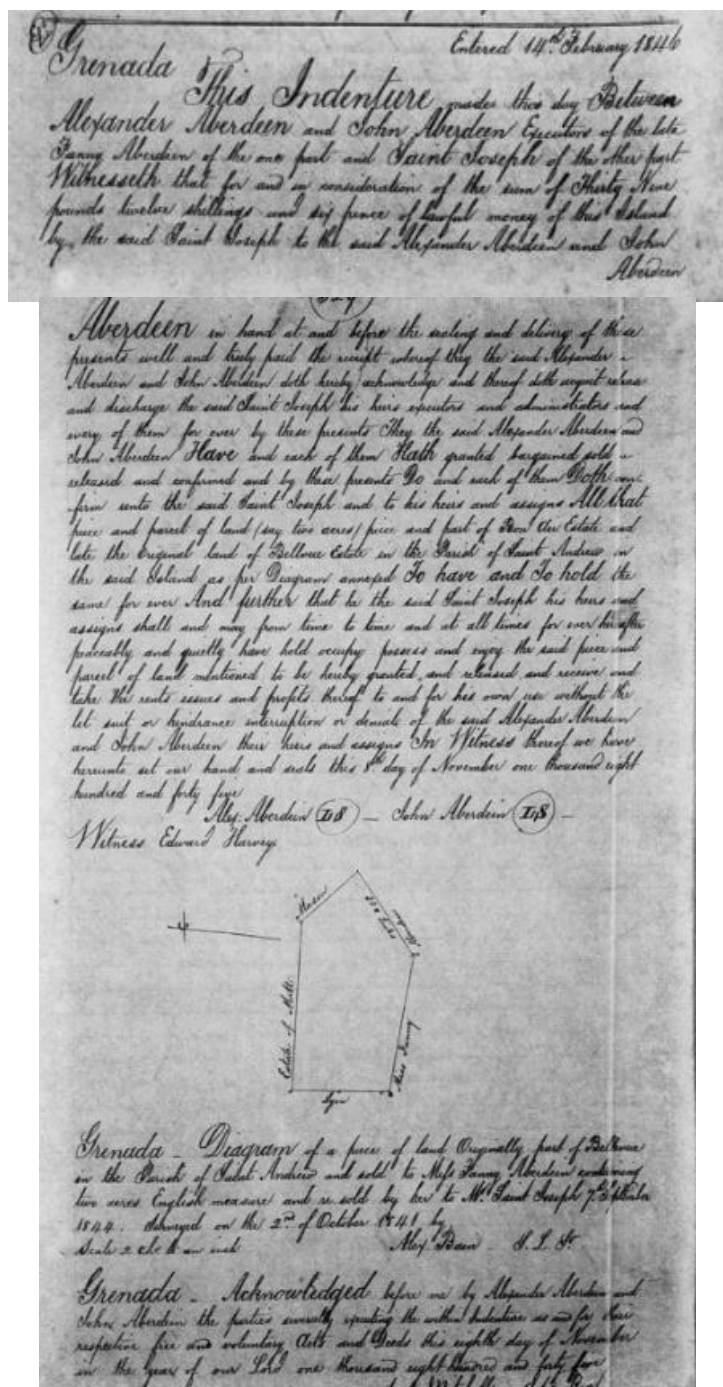 Entered 14th February 1846
Grenada
This Indenture made this day Between
Alexander Aberdeen and John Aberdeen Executors of the late
Fanny Aberdeen of the one part and Saint Joseph of the other part
Witnesseth that for and in consideration of the sum of Thirty Nine
pounds twelve shillings and six pence of lawful money of this Island
by the said Saint Joseph to the said Alexander Aberdeen and John
Aberdeen
Aberdeen in hand at and before the sealing and delivery of these
presents well and truly paid the receipt whereof they the said Alexander
Aberdeen and John Aberdeen doth hereby acknowledge and thereof doth acquit release
and discharge the said Saint Joseph his heirs executors and administrators and
every of them for ever by these presents They the said Alexander Aberdeen and
John Aberdeen Have and each of them Hath granted bargained sold
released and confirmed and by these presents Do and each of them Doth con
firm unto the said Saint Joseph and to his heirs and assigns All that
piece and parcel of land (say two acres) piece and part of Bon Air Estate and
late the Original land of Bellevue Estate in the Parish of Saint Andrew in
the said Island as per Diagram annexed To have and To hold the
same for ever And further that he the said Saint Joseph his heirs and
assigns shall and may from time to time and at all times for ever hereafter
peaceably and quietly have hold occupy possess and enjoy the said piece and
parcel of land mentioned to be hereby granted and released and receive and
take the rents issues and profits thereof to and for his own use without the
let suit or hindrance interruption or denials of the said Alexander Aberdeen
and John Aberdeen their heirs and assigns In Witness thereof we have
hereunto set our hand and seals this 8th day of November one thousand eight
hundred and forty five
Alex. Aberdein LS — John Aberdein LS —
Witness Edward Harvey
Estate of Mell
Miss Fanny
Grenada - Diagram of a piece of land Originally part of Bellevue
in the Parish of Saint Andrew and sold to Miss Fanny Aberdeen containing
two acres English measure and re sold by her to Mr. Saint Joseph 7th September
1844. Surveyed on the 2nd of October 1841 by
Scale 2 ch. to an inch Alex Bain S. L. Sr.
Grenada - Acknowledged before me by Alexander Aberdeen and
John Aberdeen the parties severally executing the within Indenture as and for their
respective free and voluntary Acts and Deeds this eighth day of November
in the year of our Lord one thousand eight hundred and forty five